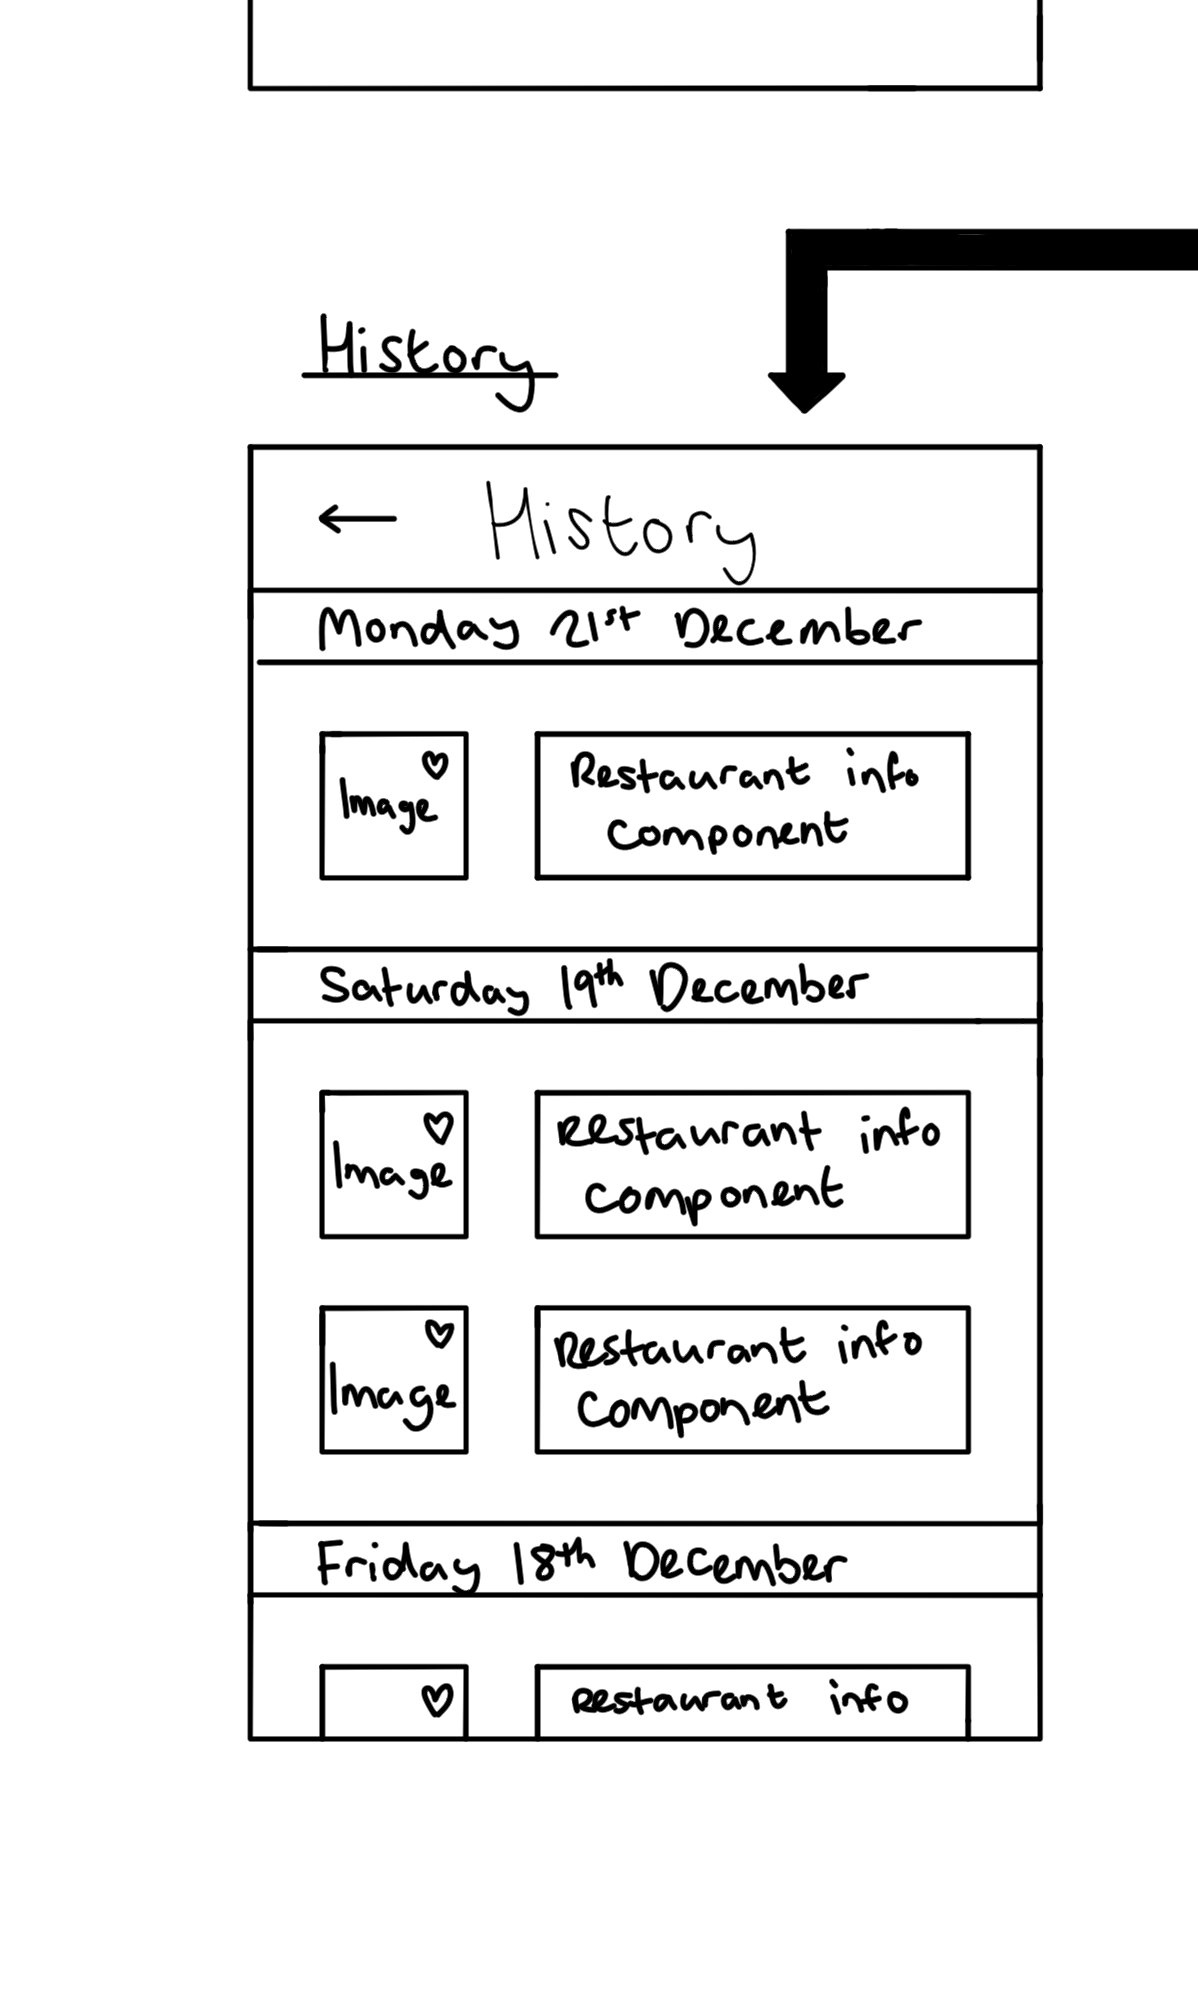 History
History
Monday 21st December
Image
Restaurant info
component
Saturday 19th December
Image
Restaurant info
component
Image
Restaurant info
component
Friday 18th December
Restaurant info